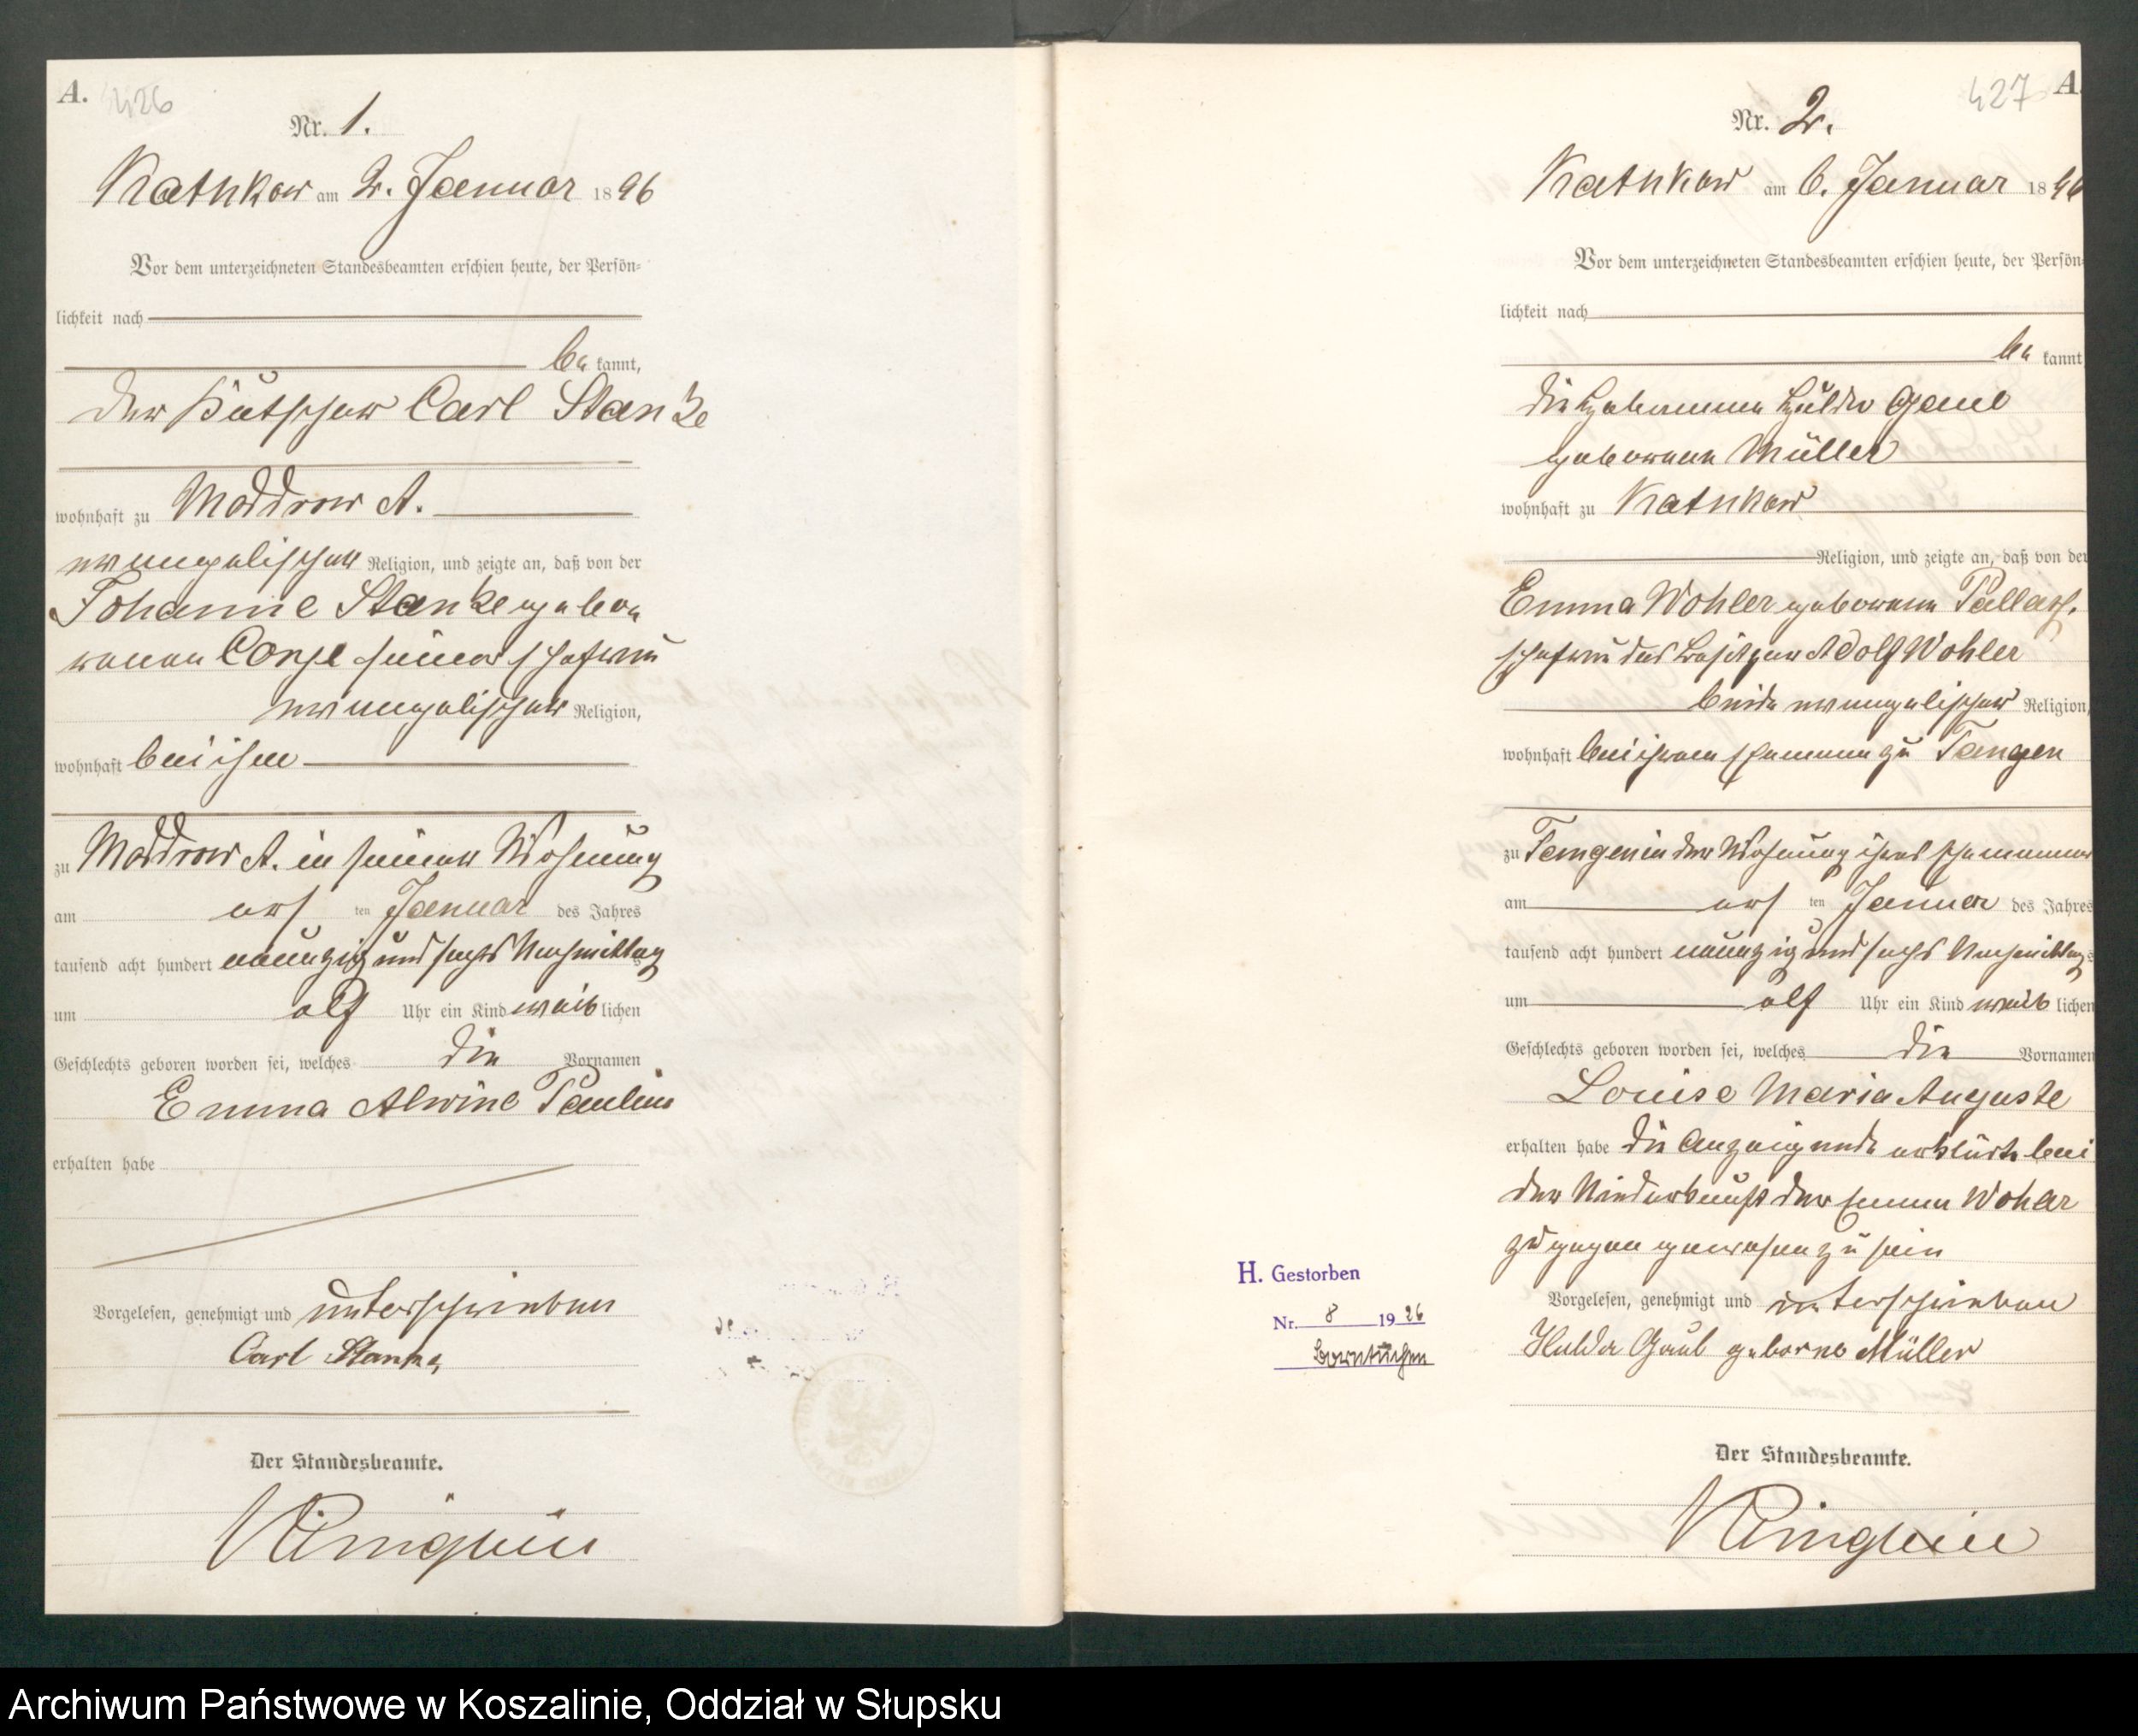 A.
426
Nr. 1.
Kathkow am 2. Januar 1896
Vor dem unterzeichneten Standesbeamten erschien heute, der Persön-
lichkeit nach
be kannt,
der Kutscher Carl Stanke
wohnhaft zu Moddrow A.
evangelischer Religion, und zeigte an, daß von der
Johanne Stanke gebo
renen seiner Ehefrau
evangelischer Religion,
wohnhaft bei ihm
zu Moddrow A. in seiner Wohnung
am ersten Januar des Jahres
tausend acht hundert neunzig und sechs Nachmittag
um elf Uhr ein Kind weiblichen
Geschlechts geboren worden sei, welches die Vornamen
Emma Alwine Pauline
erhalten habe
Vorgelesen, genehmigt und unterschrieben
Carl Stanke
Der Standesbeamte.
427
A
Nr. 2.
Kathkow am 6. Januar 1896
Vor dem unterzeichneten Standesbeamten erschien heute, der Persön-
lichkeit nach
be kannt
die Hebamme Hulda Gaul
geborene Müller
wohnhaft zu Kathkow
Religion, und zeigte an, daß von der
Emma Wohler geborene
Ehefrau des Besitzers Adolf Wohler
beide evangelischer Religion,
wohnhaft bei ihrem Ehemanne zu Tangen
zu Tangen in der Wohnung ihres Ehemannes
am ersten Januar des Jahres
tausend acht hundert neunzig und sechs Nachmittags
um elf Uhr ein Kind weiblichen
Geschlechts geboren worden sei, welches die Vornamen
Louise Maria Auguste
erhalten habe die Anzeigende erklärte bei
der Niederkunft der Wohler
zugegen gewesen zu sein
Vorgelesen, genehmigt und unterschrieben
Hulda Gaul geborne Müller
Der Standesbeamte.
H. Gestorben
Nr. 8 1926
Borntuchen
Archiwum Państwowe w Koszalinie, Oddział w Słupsku